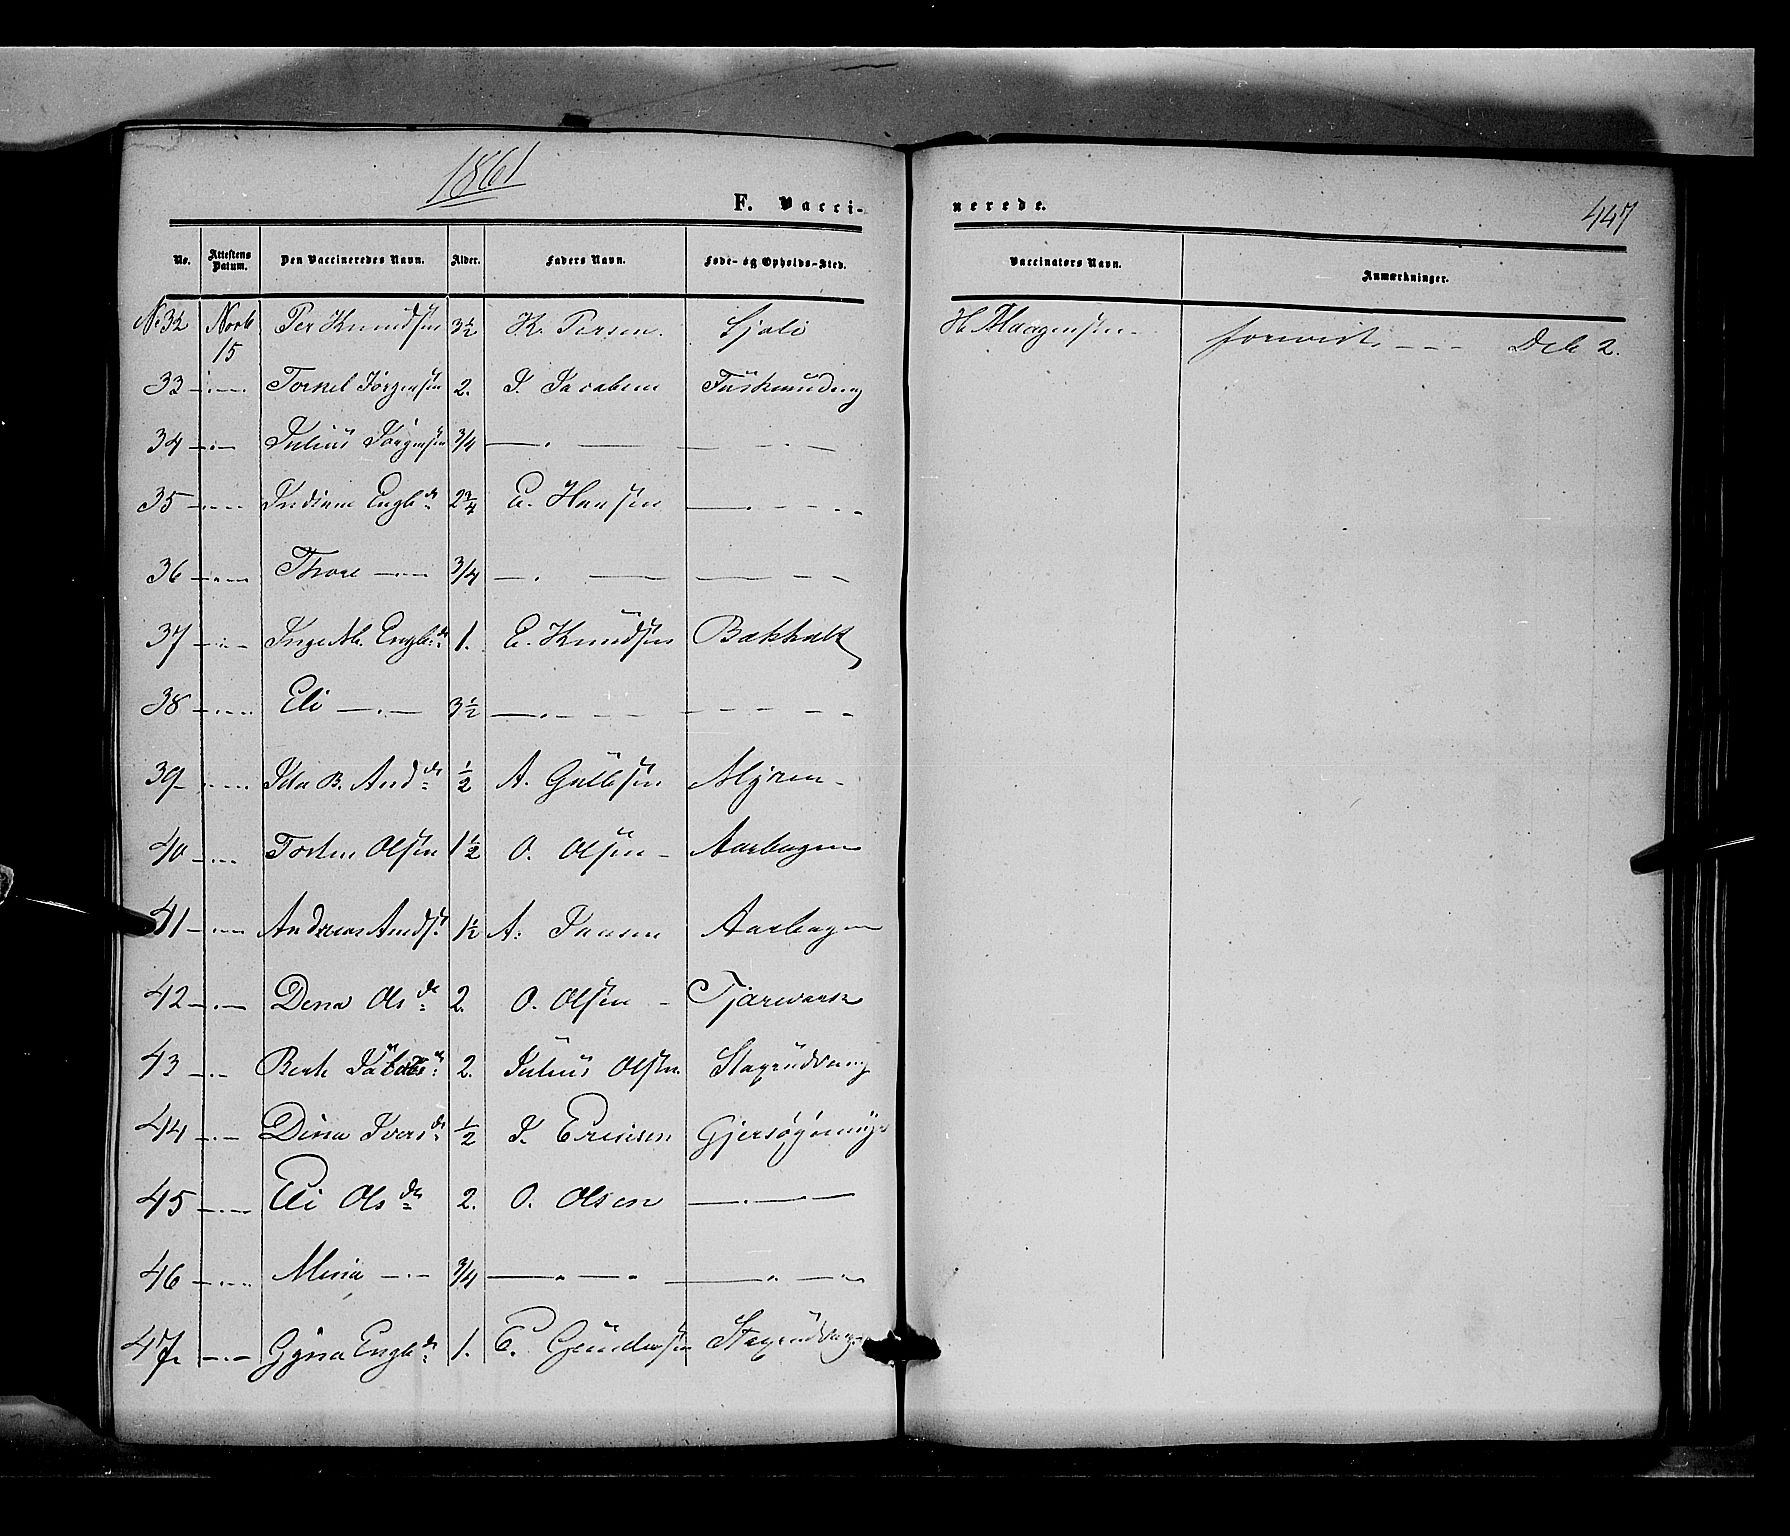 1861
F. Vacci- nerede. 447
No. Attestens Datum. Den Vaccineredes Navn. Alder. Faders Navn. Føde- og Opholds-Sted. Vaccinators Navn. Anmærkninger.
No 32 Novb 15 Per Knudsen 3½ K. Persen. Sjoli H. Haagensen - forevist. - - - Deb 2.
33 - - - Torkel Jørgensen 2. J. Jacobsen
34 - - - Julius Jørgensen 3/4 - - -
35 - - - Engbds 2¾ E. Hansen - - -
36 - - - Thore - - - 3/4 - - -
37 - - - Engbds 1. E. Knudsen Bakholt
38 - - - Eli - - - 3½ - - -
39 - - - Ida B. Andds ½ A. Gulbsen Myren -
40 - - - Torsten Olsen 1½ O. Olsen - Aasbagen
41 - - - Andreas Andst 1½ A. Jansen Aasbagen
42 - - - Dina Olsds 2. O. Olsen -
43 - - - Berte 2. Julius Olsen. Stagrudvang
44 - - - Dina Iversds ½ I. Ericsen
45 - - - Eli Olsds 2. O. Olsen - - -
46 - - - Mina - - - 3/4 - - -
47. - - - Gyna Engbds 1. E. Gundersen Stagrudvang